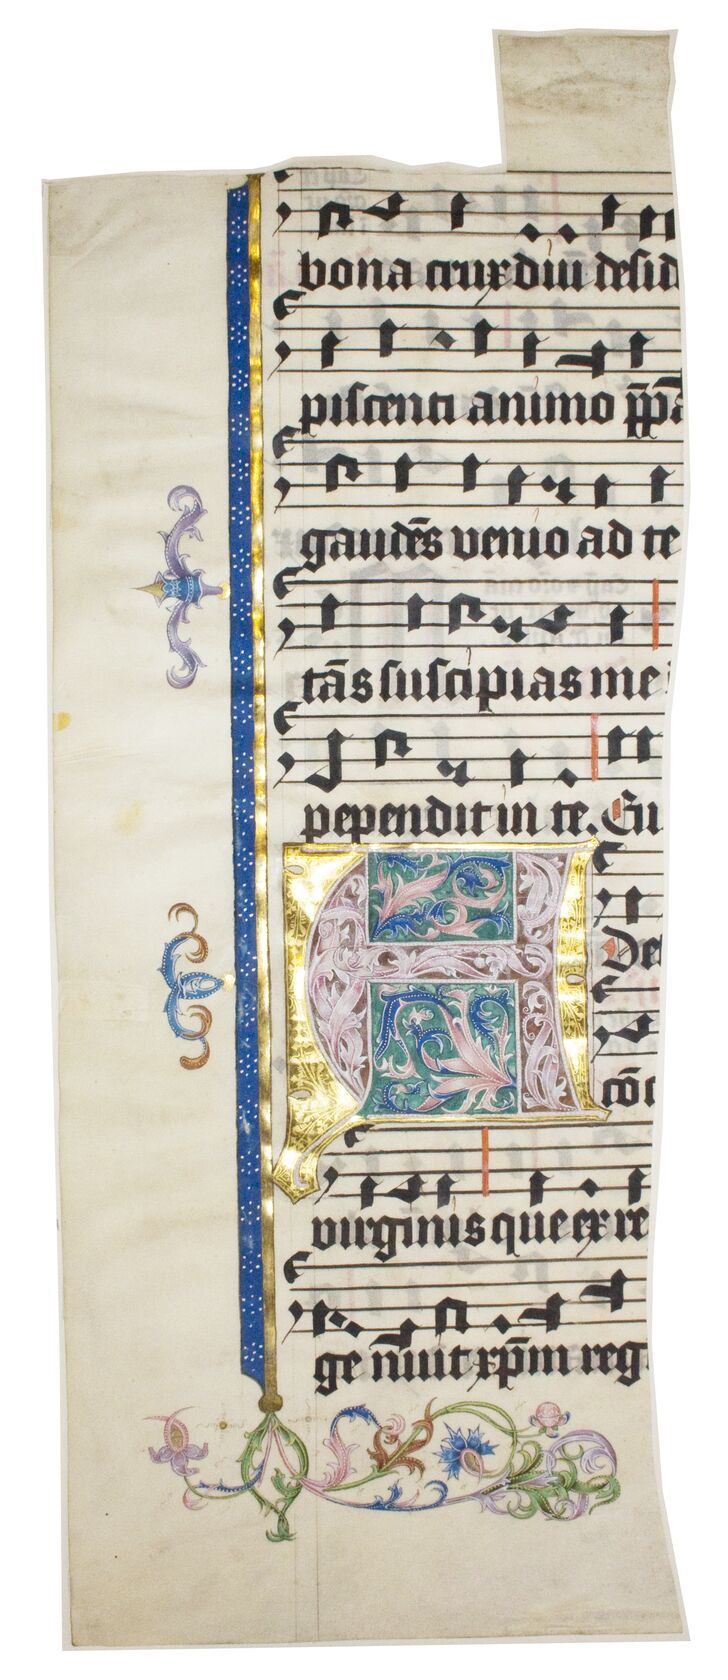 bona crux diu desid
piscenti animo p̄p̄a
gaudēs venio ad te
tās suscipias me
pependit in te. Eu
A De
cōc
virginis que ex re
ge nuit xp̄m reg